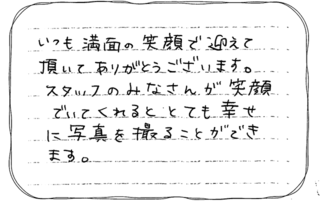 いつも満面の笑顔で迎えて
頂いてありがとうございます。
スタッフのみなさんが笑顔
でいてくれるととても幸せ
に写真を撮ることができ
ます。